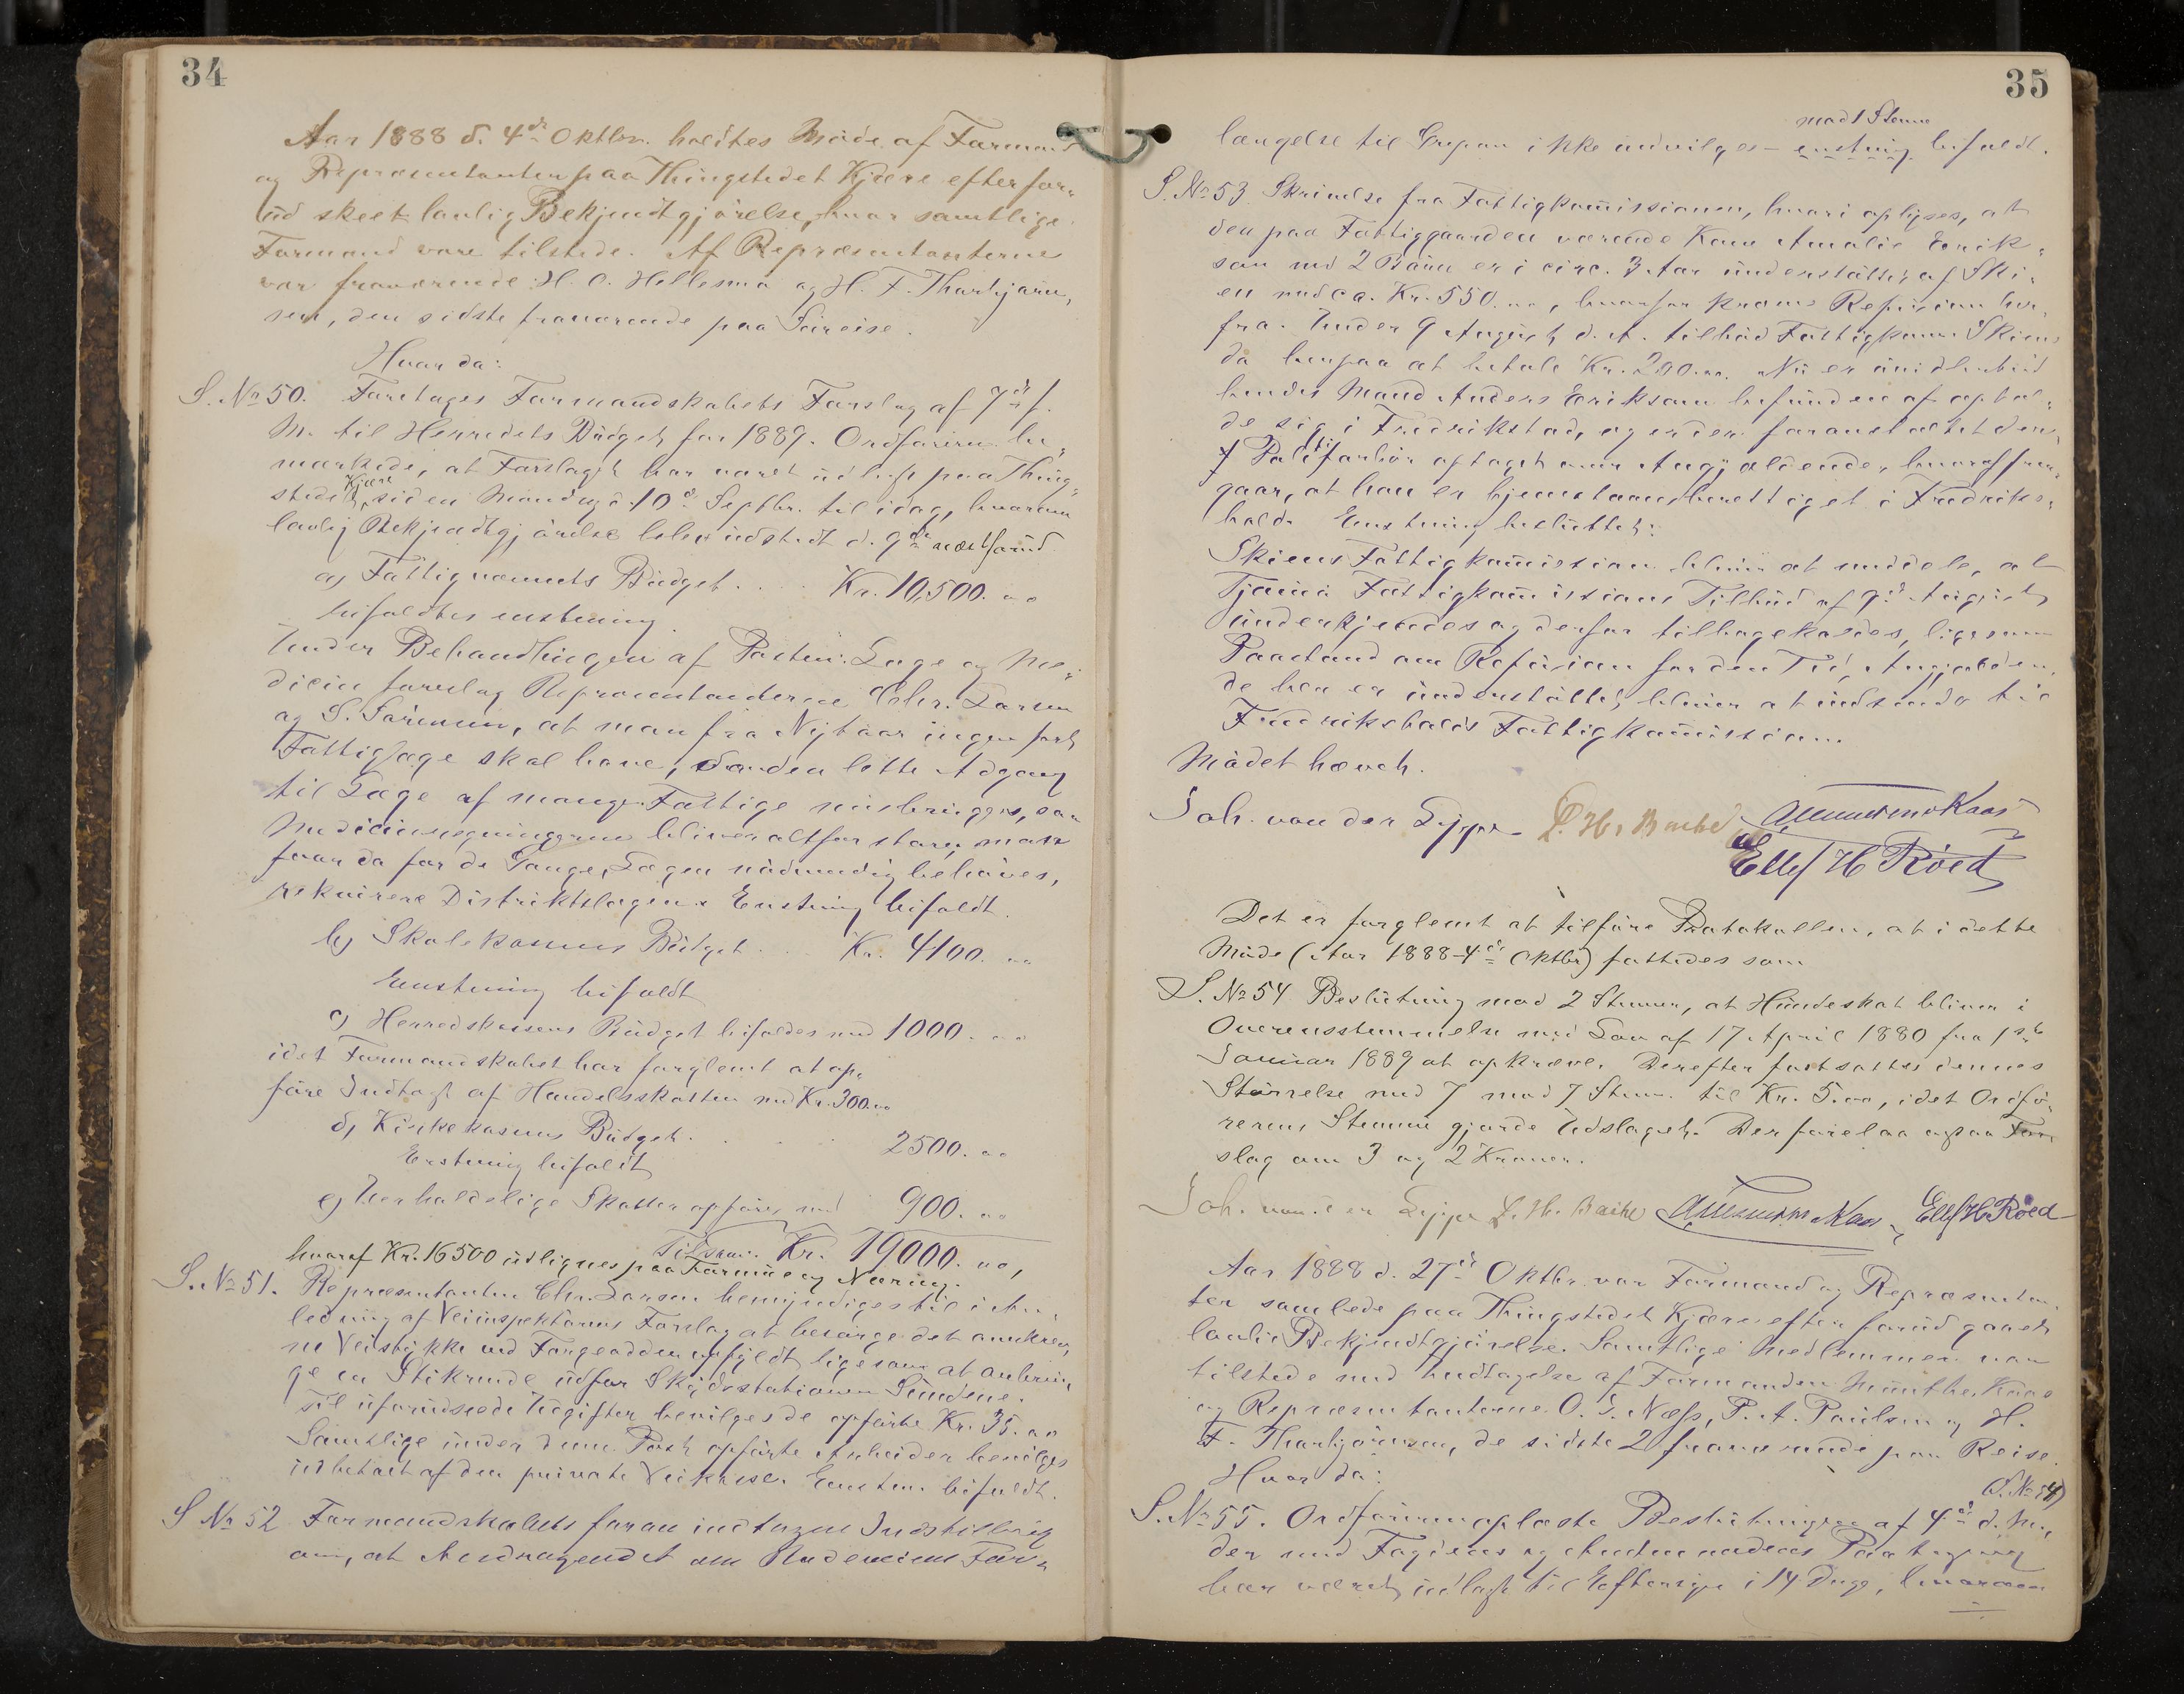 34
Aar 1888 d. 4de Oktbr. holdtes Møde af Formænd
og Repræsentanter paa Thingstedet Kjære efter for-
ud skeet lovlig Bekjendtgjørelse, hvor samtlige
Formænd vare tilstede. Af Repræsentanterne
var fraværende H. C. Hellesma og H. F. Thorbjørn-
sen, den sidste fraværende paa Søreise.
Hvor da:
S. No 50. Foretages Formandskabets Forslag af 7de f.
M. til Herredets Büdget for 1889. Ordføreren be-
mærkede, at Forslaget har været üdlagt paa Thing-
stedet Kjære siden Mandag d. 10de Septbr. til idag, hvorom
lovlig Bekjendtgjørelse blev üdstedt d. 9de næstforüd
a) Fattigvæsenets Büdget . . . Kr. 10,500. 00
bifaldtes enstemmig.
Under Behandlingen af Posten: Læge og Me-
dicin foreslog Repræsentanterne Chr. Larsen
og S. Sørensen, at man fra Nytaar ingen fast
Fattiglæge skal have, da den lette Adgang
til Læge af mange Fattige misbrüges, saa
Medicinregningerne bliver altfor store; man
faar da for de Gange, Lægen nødvendig behøves,
rekvirere Distriktslægen. Enstemmig bifaldt.
b) Skolekassens Büdget . . Kr. 4100. 00
Enstemmig bifaldt
c) Herredskassens Büdget bifaldes med 1000. 00
idet Formandskabet har forglemt at op-
føre Indtægt af Handelsskatten med Kr. 300.00
d) Kirkekassens Büdget . . . . . 2500. 00
Enstemmig bifaldt
e) Uerholdelige Skatter opføres med 900. 00
Tilsam. Kr. 19000. 00,
hvoraf Kr. 16500 üdlignes paa Formüe og Næring.
S. No 51. Repræsentanten Chr. Larsen bemyndiges til i An-
ledning af Veiinspektørens Forslag at besørge det
ne Veistykke ved opfyldt ligesom at anbrin-
ge en Stikrende üdfor Skydsstationen Sündene.
Til üforüdseede Udgifter bevilges de opførte Kr. 35. 00
Samtlige ünder denne Post opførte Arbeider bevilges
üdbetalt af den private Veikasse. Enstem. bifaldt.
S No 52 Formandskabets foran indtagne Indstilling
om, at Andragendet om Rodeveiens For-
35
mod 1 Stemme
længelse til Grepan ikke indvilges – enstemmig bifaldt.
S. No 53 Skrivelse fra Fattigkommissionen, hvori oplyses, at
den paa Fattiggaarden værende Kone Amalie Erik-
son med 2 Børn er i circ. 3 Aar ünderstøttet af Ski-
en med ca. Kr. 550. 00, hvorfor kræves Refüsion her-
fra. Under 9 Aügüst d. A. tilbød Fattigkomm. Skien
da herpaa at betale Kr. 200. 00. Nü er imidlertid
hendes Mand Anders Erikson befünden af ophol-
de sig i Fredrikstad, og er der foranstaltet den-
f Politiforhør optaget over Angjældende, hvoraf frem-
gaar, at han er hjemstavnsberettiget i Fredriks-
hald. Enstemmig beslüttet:
Skiens Fattigkommission bliver at meddele, at
Tjømø Fattigkommissions Tilbüd af 9de Aügüst
ünderkjendes og derfor tilbagekaldes, ligesom
Paastand om Refüsion for den Tid, Angjælden-
de her er ünderstøttet, bliver at indsende til
Fredrikshalds Fattigkommission.
Mødet hævet.
Joh. von der Lippe L. Hr Bache Aunemunthe Kaas
Ellef H Röed
Det er forglemt at tilføre Protokollen, at i dette
Møde (Aar 1888–4de Oktbr) fattedes som
S. No 54 Beslütning mod 2 Stemmer, at Hündeskat bliver i
Overensstemmelse med Lov af 17 April 1880 fra 1ste
Januar 1889 at opkræve. Derefter fastsattes dennes
Størrelse med 7 mod 7 Stem. til Kr. 5. 00, idet Ordfø-
rerens Stemme gjorde Udslaget. Der forelaa ogsaa For-
slag om 3 og 2 Kroner.
Joh. von der Lippe L. Hr. Bache Kaas Ellef H. Röed
Aar 1888 d. 27de Oktbr. var Formænd og Repræsentan-
ter samlede paa Thingstedet Kjære efter forüd gaaet
lovlig Bekjendtgjørelse. Samtlige Medlemmer var
tilstede med Undtagelse af Formanden Münthe Kaas
og Repræsentanterne O. J. Næss, P. A. Paülsen og H.
F. Thorbjørnsen, de sidste 2 fraværende paa Reise.
Hvor da:
(S. No 54)
S. No 55. Ordføreren oplæste Beslütningen af 4de d. M.,
der med Fogdens og Amtmandens Paategning
har været üdlagt til Eftersyn i 14 Dage, hvorom